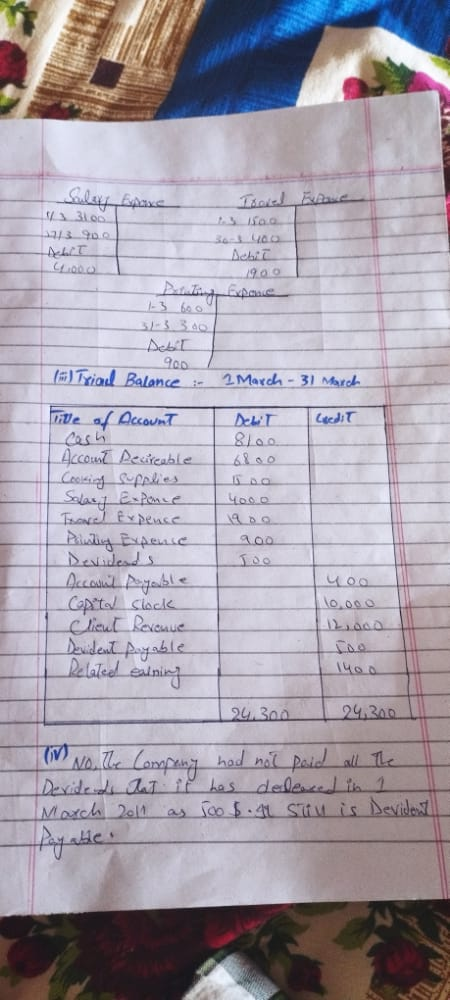 Salary Expence Travel Expence
1/3 3100 1-3 1500
27/3 900 30-3 400
Debit Debit
4,000 1900
Printing Expence
1-3 600
31-3 300
Debit
900
(iii) Triad Balance :- 1 March - 31 March
Title of Account Debit Credit
Cash 8100
Account Decireable 6800
Cooking Supplies 1500
Salary Expence 4000
Travel Expence 1900
Printing Expence 900
Dividends 500
Account Payable 400
Capital Stock 10,000
Client Revenue 12,000
Devident Payable 500
Related earning 1400
24,300 24,300
(iv) No, The Company had not paid all the
Devidends that it has decleared in 1
March 2011 as 500 $. still is Devident
Payable.